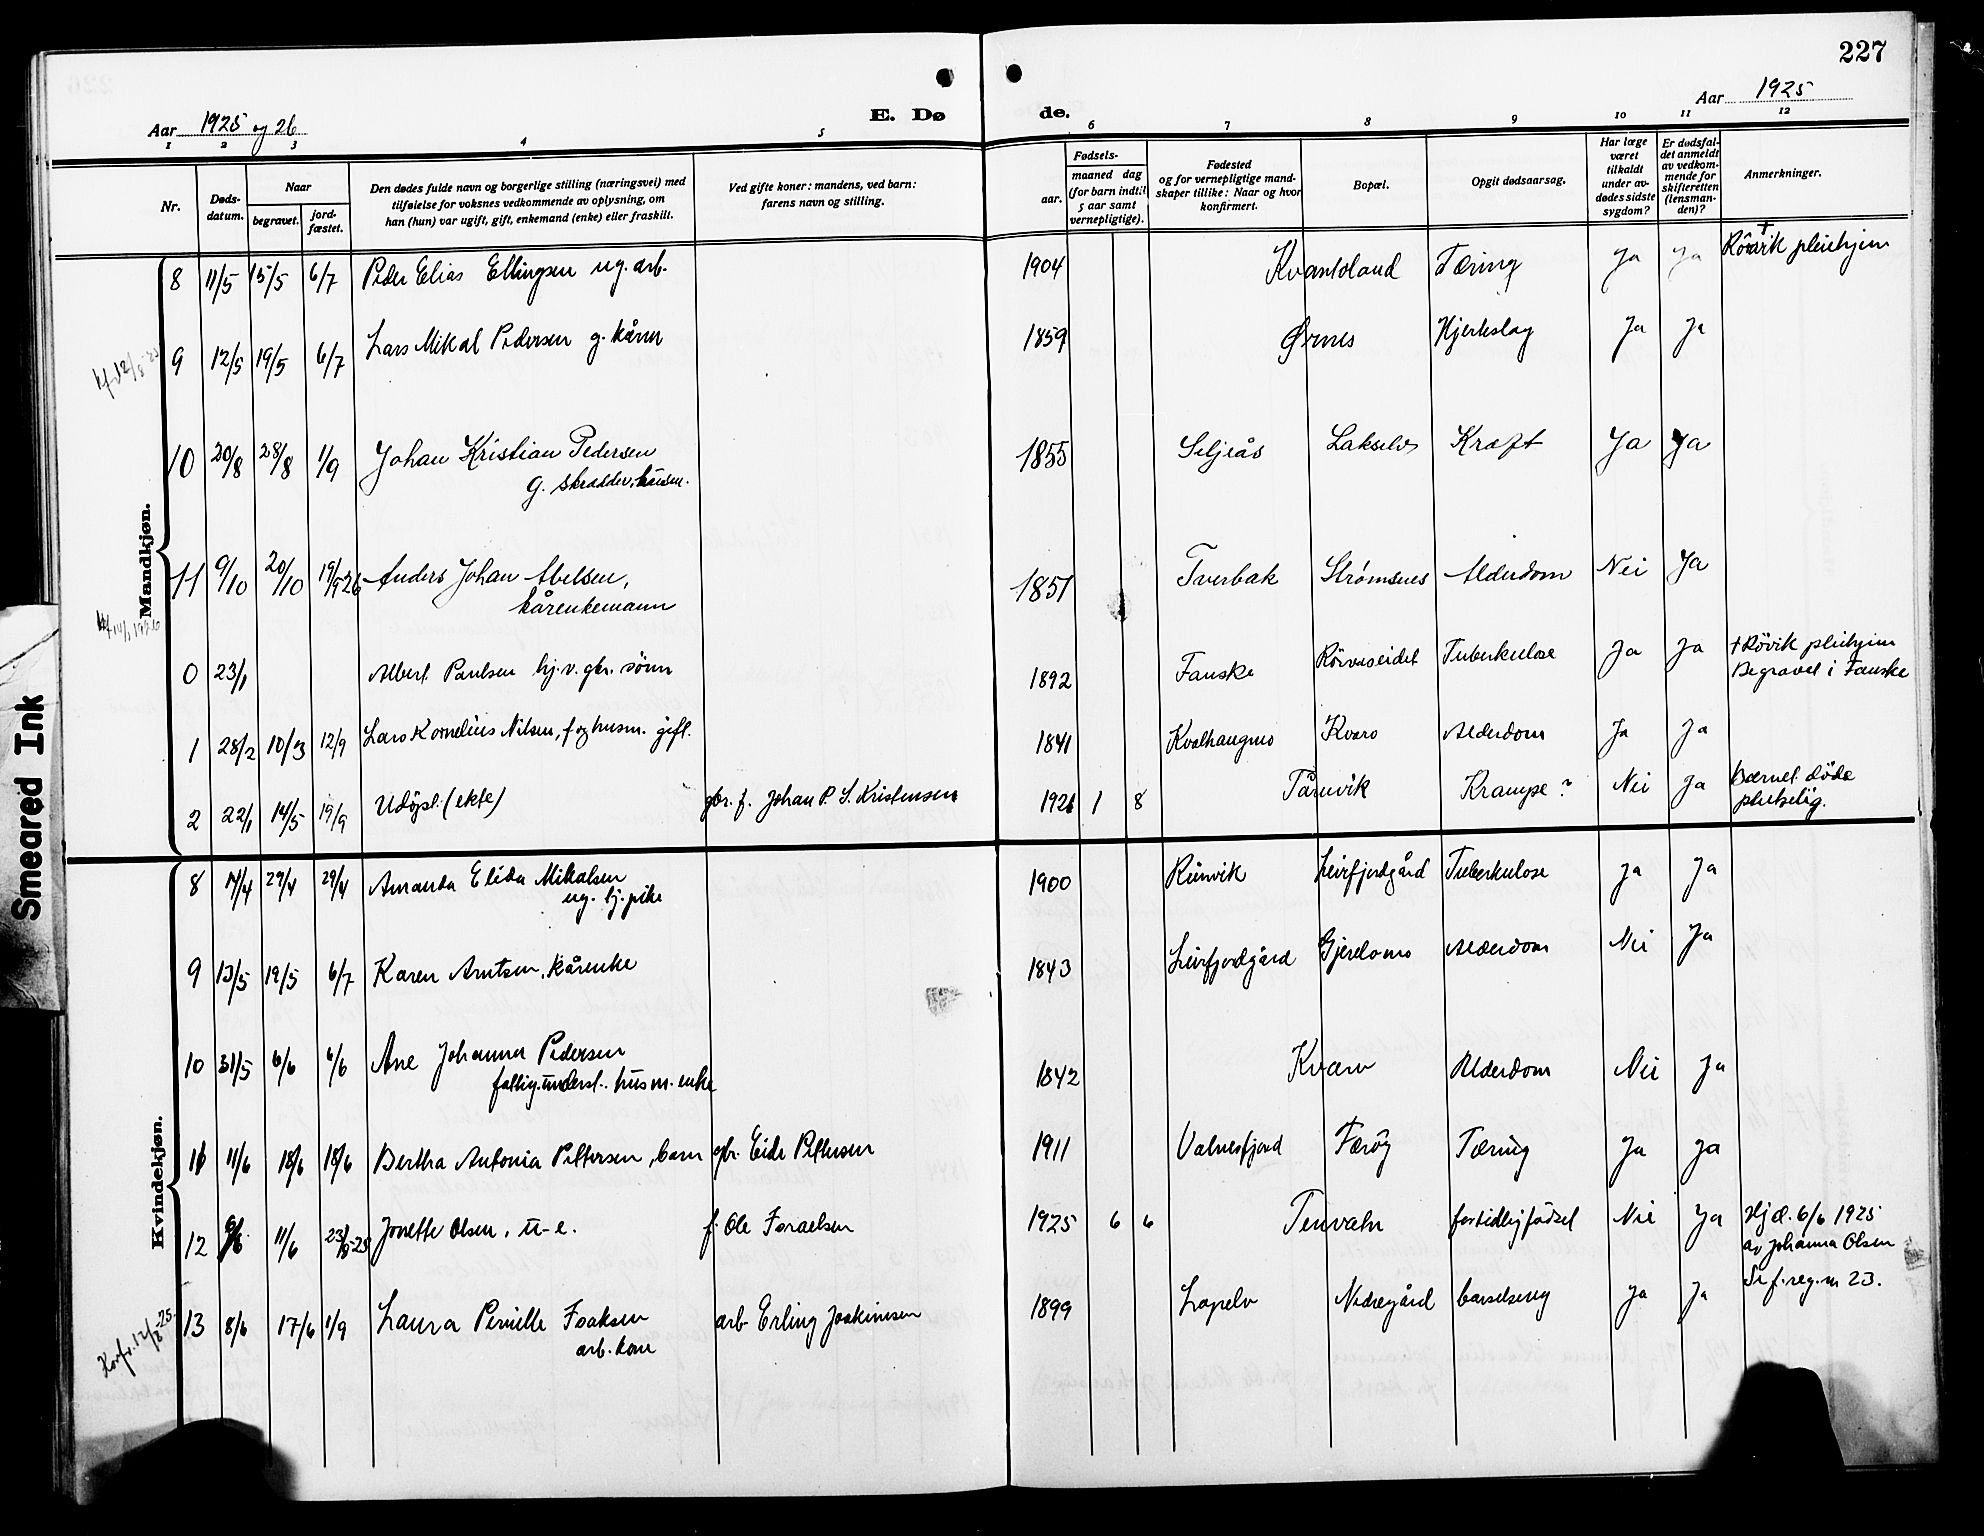 227
Aar 1925 og 26
E. Dø
de.
Aar 1925
1 2 3 4 5 6 7 8 9 10 11 12
Nr.
Døds-
datum.
Naar
begravet.
jord-
fæstet.
Den dødes fulde navn og borgerlige stilling (næringsvei) med
tilføielse for voksnes vedkommende av oplysning, om
han (hun) var ugift, gift, enkemand (enke) eller fraskilt.
Ved gifte koner: mandens, ved barn:
farens navn og stilling.
Fødsels-
aar.
maaned dag
(for barn indtil
5 aar samt
vernepligtige).
Fødested
og for vernepligtige mand-
skaper tillike: Naar og hvor
konfirmert.
Bopæl.
Opgit dødsaarsag.
Har læge
været
tilkaldt
under av-
dødes sidste
sygdom?
Er dødsfal-
det anmeldt
av vedkom-
mende for
skifteretten
(lensman-
den)?
Anmerkninger.
Mandkjøn.
8 11/5 15/5 6/7 Peder Elias Ellingsen ug. arb. 1904 Kvantoland Tæring Ja Ja Rövik pleiehjem
9 12/5 19/5 6/7 Lars Mikal Pedersen g. kårm 1859 Ørnes Hjerteslag Ja Ja
10 20/8 28/8 1/9 Johan Kristian Pedersen 1855 Seljeås Lakselv Kraft Ja Ja
g. skrædder, husm.
11 9/10 20/10 19/9 26 Anders Johan Abelsen, 1851 Tverbak Strømsnes Alderdom Nei Ja
kårenkemann
0 23/1 Albert Paulsen hj. v. gbr. sönn 1892 Fauske Rörvikseidet Tuberkulose Ja Ja + Rövik pleiehjem
Begravet i Fauske
1 28/2 10/3 12/9 Lars Kornelius Nilsen, f og husm. gift. 1841 Kvalhaugmo Kvarv Alderdom Ja Ja
2 22/1 14/5 19/9 Udöpt (ekte) gbr. f. Johan P. S. Kristensen 1926 1 8 Tårnvik Krampe? Nei Ja Barnet döde
plutselig.
Kvindekjøn.
8 14/4 29/4 29/4 Amanda Elida Mikalsen 1900 Rünvik Leivfjordgård Tuberkulose Ja Ja
ug. hj. pike
9 13/5 19/5 6/7 Karen Arntsen, kårenke 1843 Leivfjordgård Gjerdomo Alderdom Nei Ja
10 31/5 6/6 6/6 Ane Johanna Pedersen 1842 Kvarv Alderdom Nei Ja
fattig.underst. husm. enke
11 11/6 18/6 18/6 Bertha Antonia Pettersen, barn gbr. Eide Pettersen 1911 Valnesfjord Færöy Tæring Ja Ja
12 6/6 11/6 23/8-25 Jonette Olsen, u-e. f. Ole Israelsen 1925 6 6 Tenvatn fortidlig födsel Nei Ja Hj.d. 6/6 1925
av Johanna Olsen
13 8/6 17/6 1/9 Laura Pernille Isaksen arb Erling Joakimsen 1899 Lapelv Nedregård barselseng Ja Ja Se f. reg. n 23.
arb. kone
Korfr. 12/8-25.
Smeared Ink